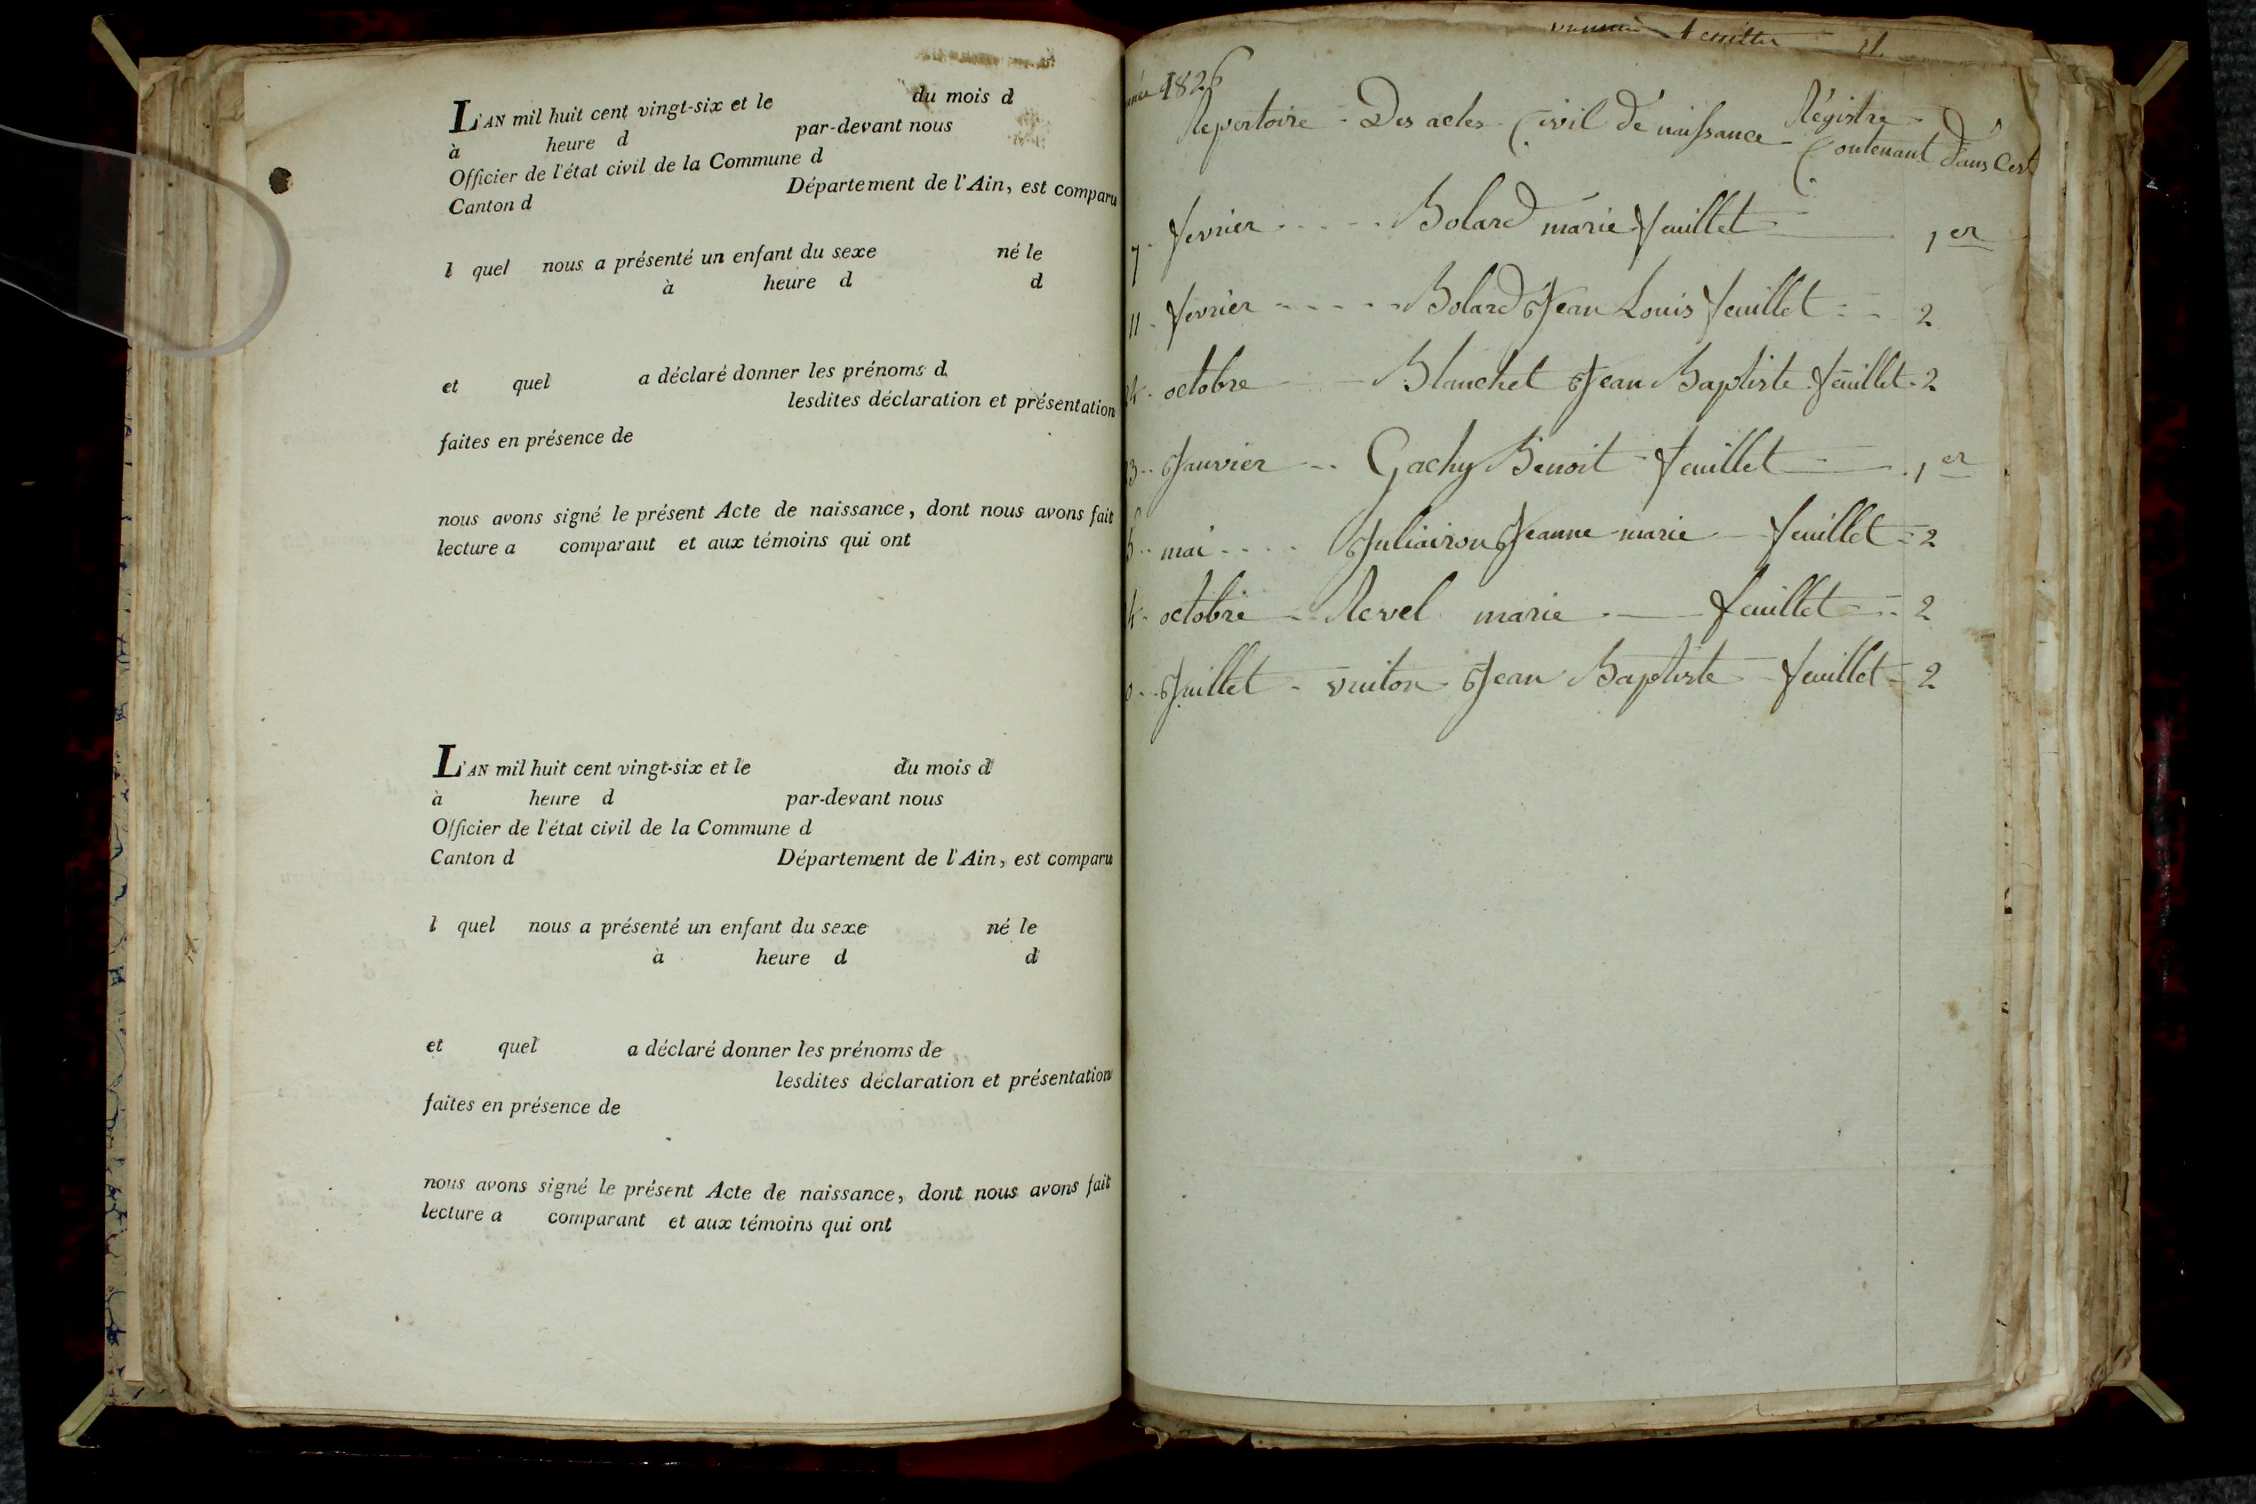 L'AN mil huit cent vingt-six et le du mois d
à heure d par-devant nous
Officier de l'état civil de la Commune d
Canton d Département de l'Ain, est comparu
l quel nous a présenté un enfant du sexe né le
à heure d d
et quel a déclaré donner les prénoms d
lesdites déclaration et présentation
faites en présence de
nous avons signé le présent Acte de naissance, dont nous avons fait
lecture a comparant et aux témoins qui ont
L'AN mil huit cent vingt-six et le du mois d
à heure d par-devant nous
Officier de l'état civil de la Commune d
Canton d Département de l'Ain, est comparu
l quel nous a présenté un enfant du sexe né le
à heure d d
et quel a déclaré donner les prénoms de
lesdites déclaration et présentation
faites en présence de
nous avons signé le présent Acte de naissance, dont nous avons fait
lecture a comparant et aux témoins qui ont
1826
Repertoire - Des actes Civil de naissance Contenant dans Cest
Régistre
7. fevrier Bolard marie feuillet 1er
11. fevrier Bolard Jean Louis feuillet 2
octobre Blanchet Jean Baptiste feuillet 2
Janvier Gachy Benoit feuillet 1er
mai Juliairon Jeanne marie feuillet 2
octobre Revel marie feuillet 2
Juillet vuiton Jean Baptiste feuillet 2